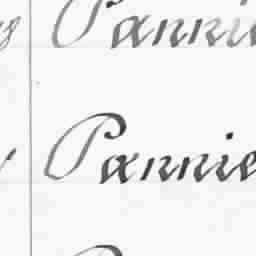 Pannie
Pannie